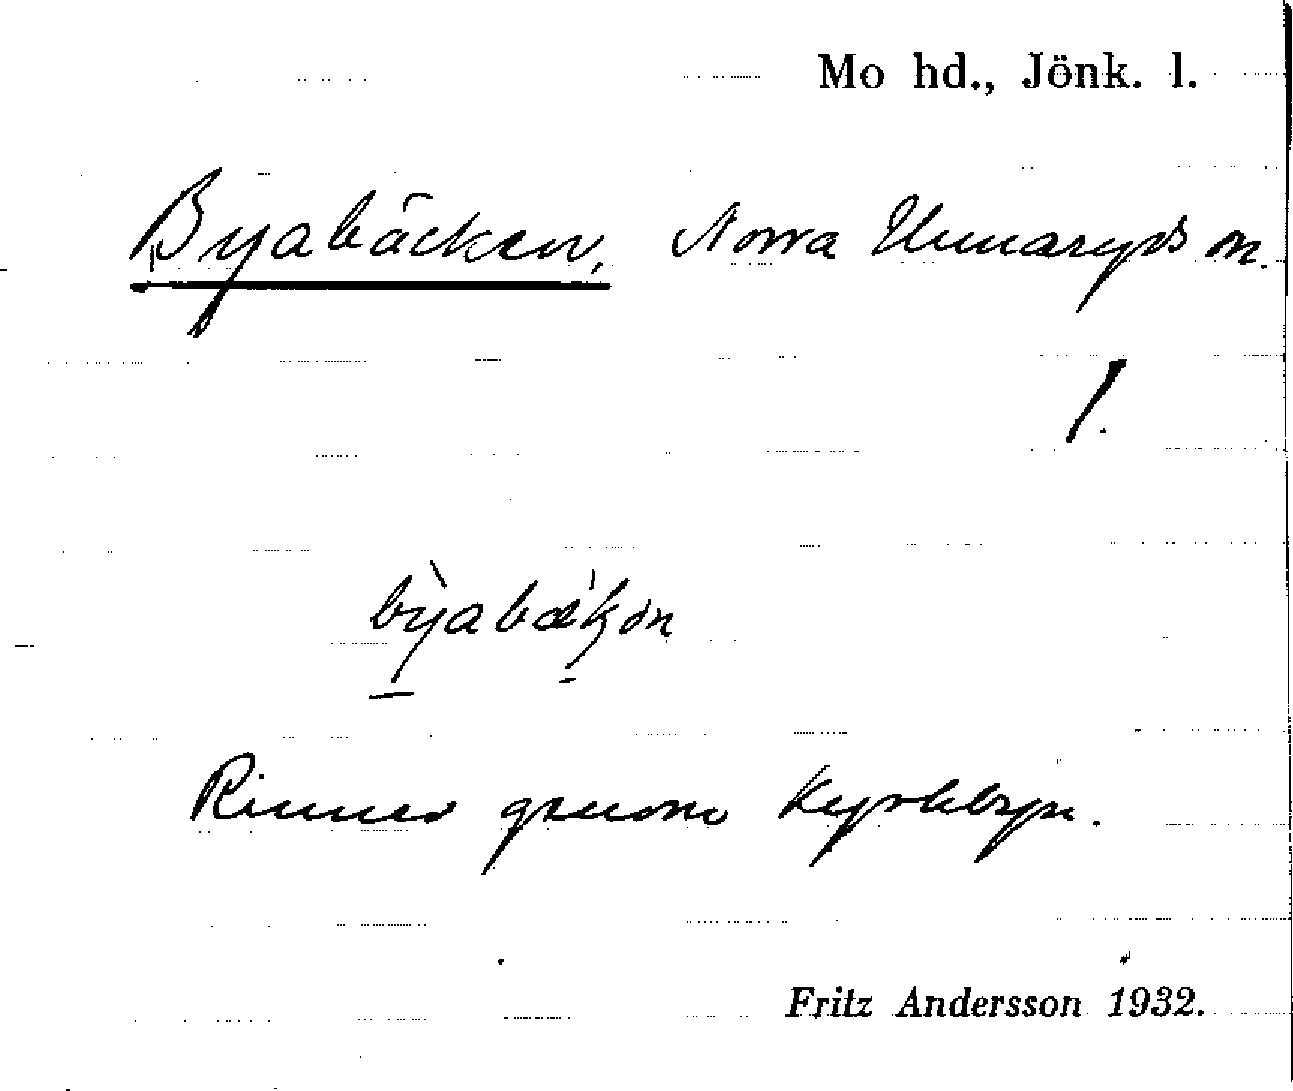 Mo hd., Jönk. l.
Byabäcken, Norra Unnaryds sn.
/.
Rinner genom kyrkbyn.
Fritz Andersson 1932.